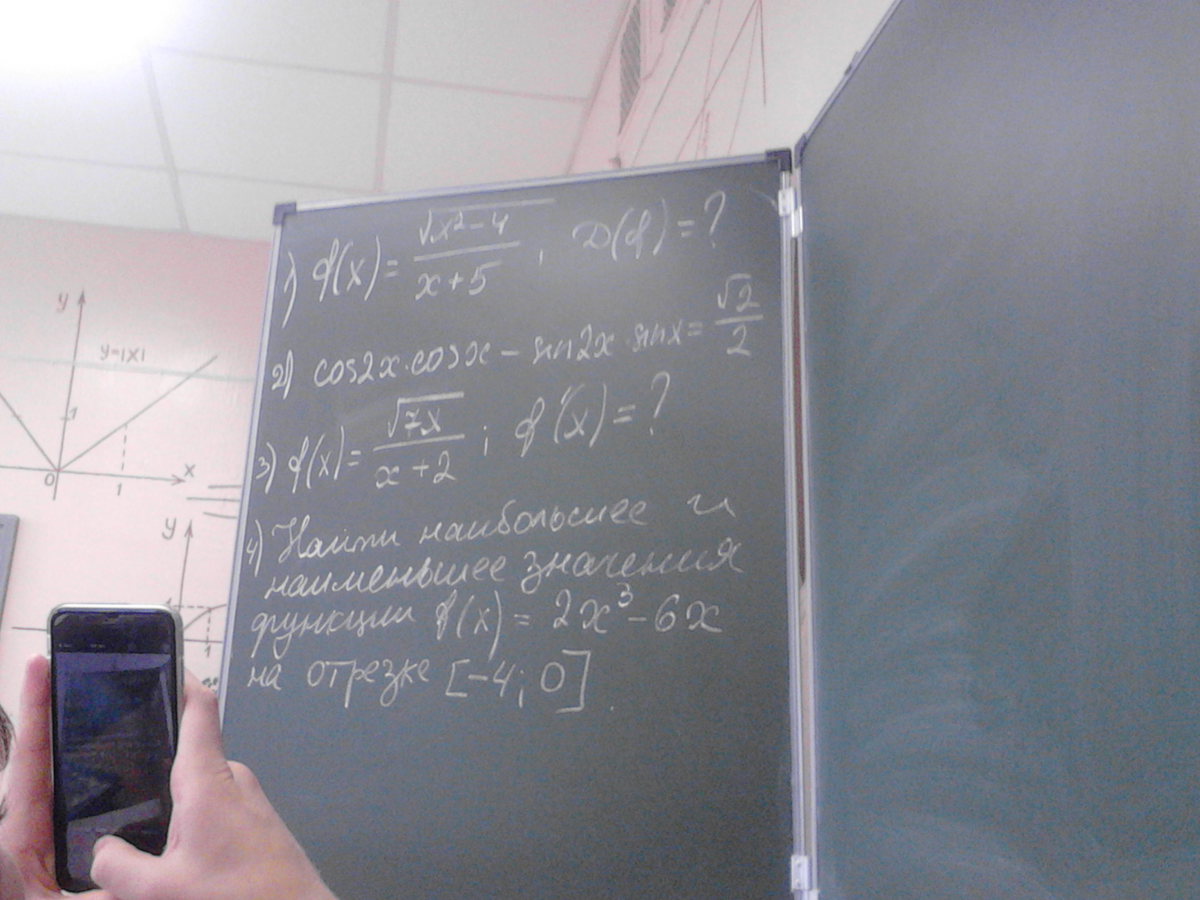 1) f(x) = √(x²-4) / (x+5) , D(f) = ?
2) cos2x·cosx - sin2x·sinx = √2/2
3) f(x) = √(7x) / (x+2) ; f'(x) = ?
4) Найти наибольшее и
наименьшее значения
функции f(x) = 2x³-6x
на отрезке [-4; 0].
y
y=|x|
1
0
1
x
y
1